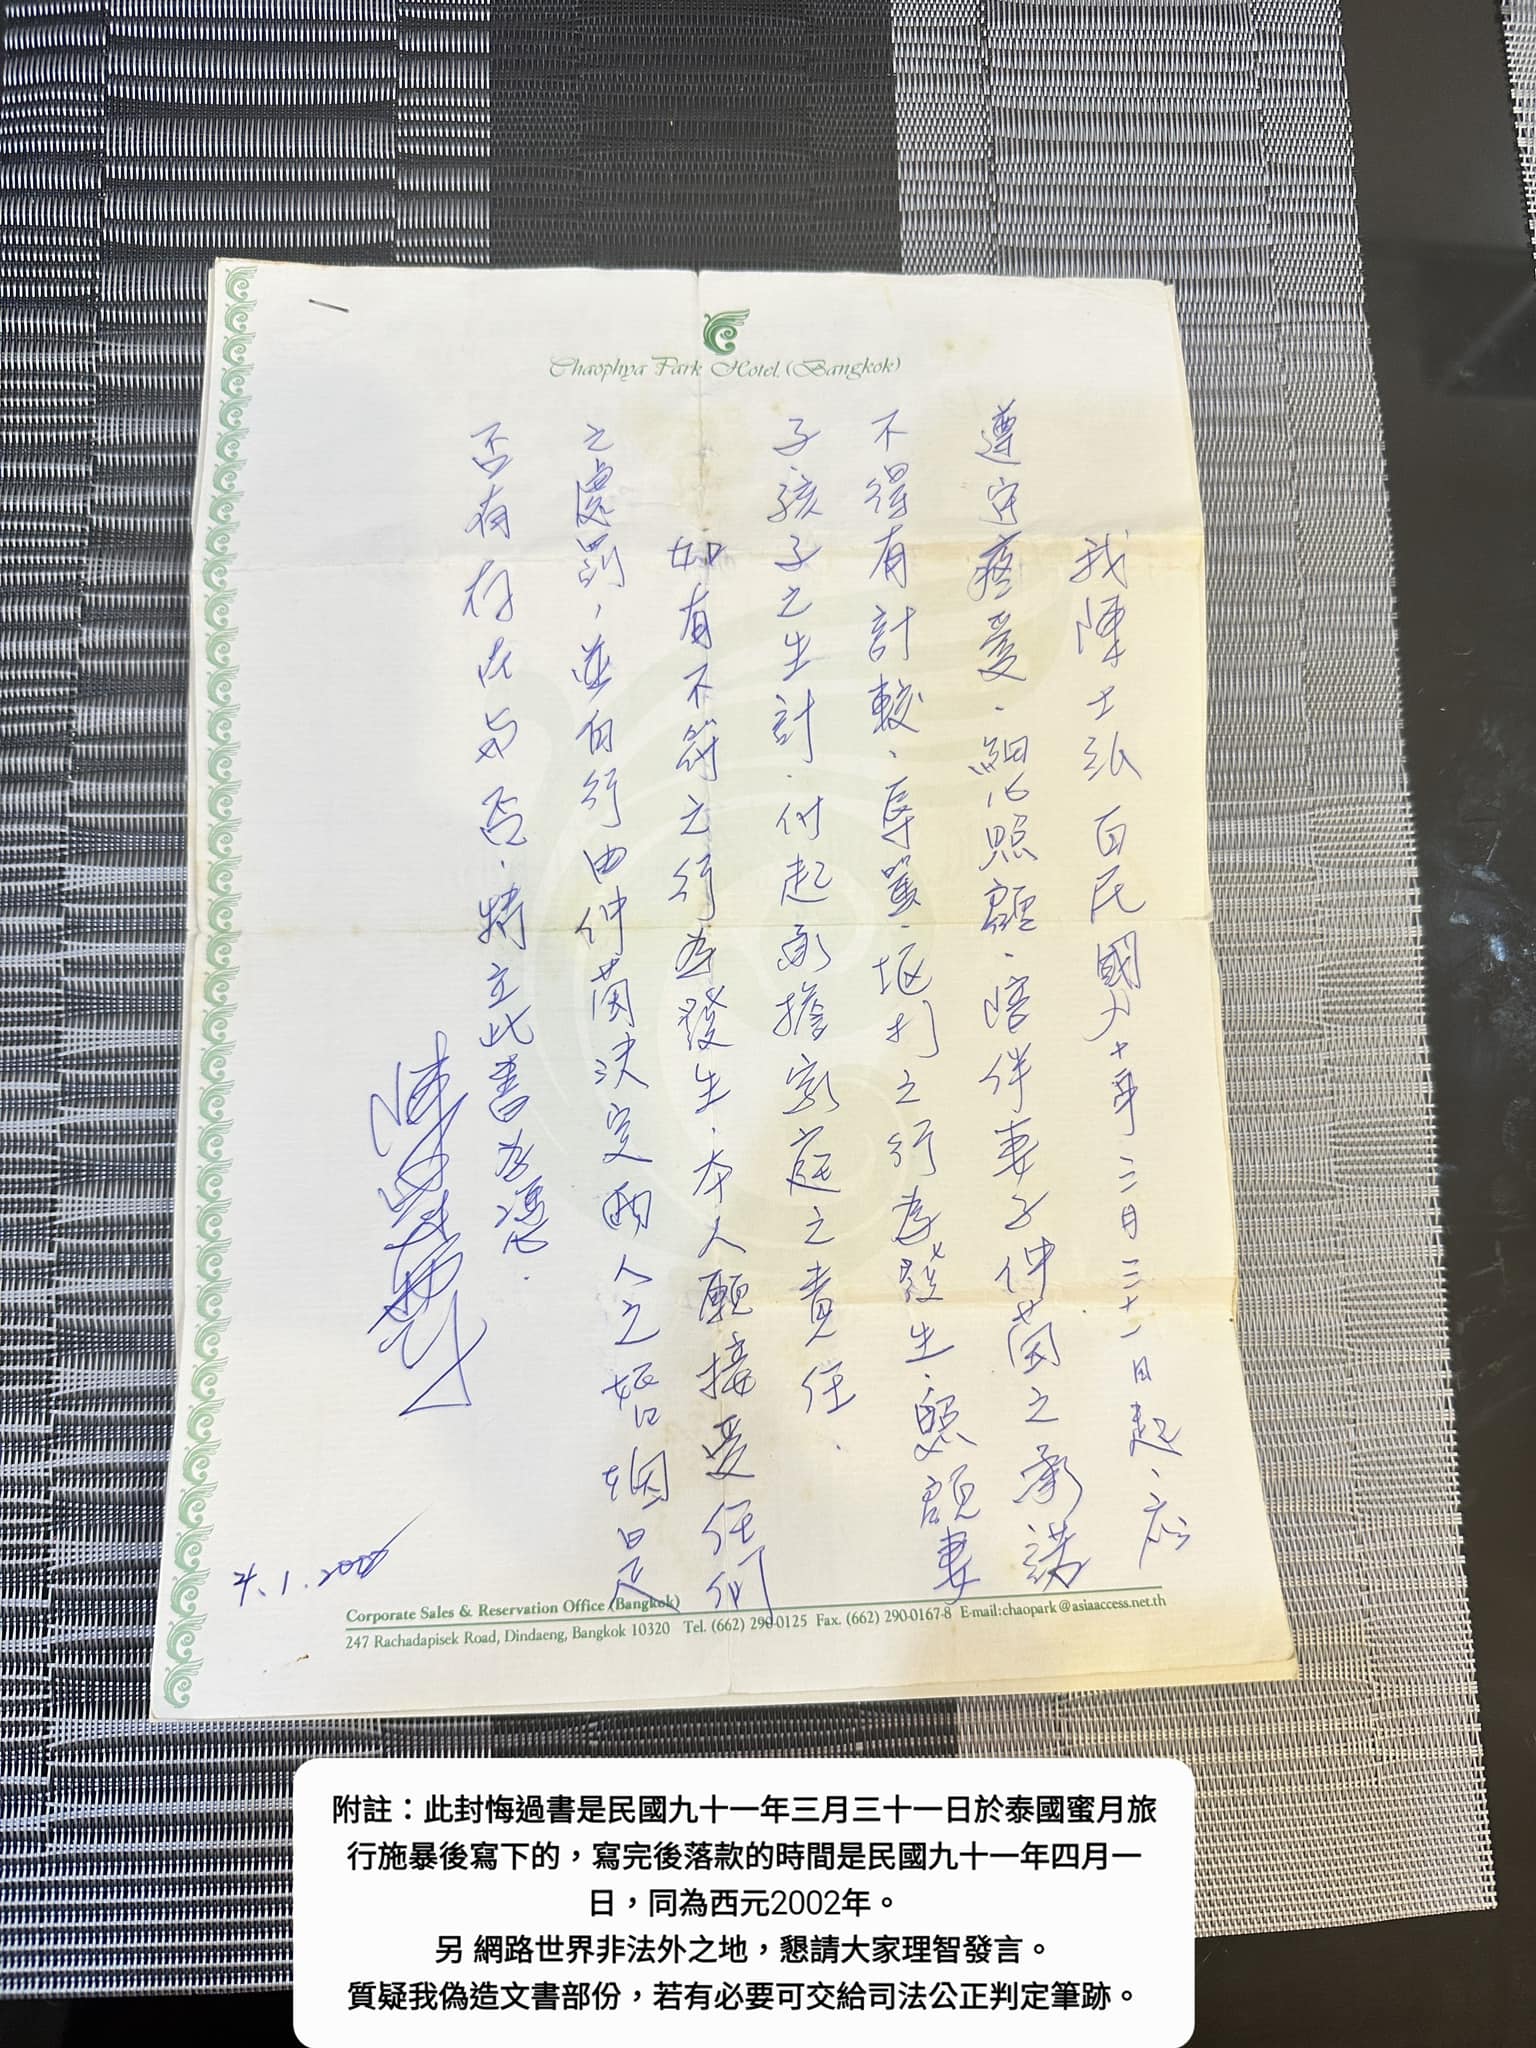 Chaophya Park Hotel. (Bangkok)
我陳士泓自民國九十年三月三十一日起、應
遵守疼愛、細心照顧、陪伴妻子仲茵之承諾
不得有計較、辱罵、打之行為發生、照顧妻
子孩子之生計、付起承擔家庭之責任、
如有不符之行為發生、本人願接受任何
之處罰，並自行由仲茵決定兩人之婚姻是
否有存在與否、特立此書為憑、
4.1.2002
Corporate Sales & Reservation Office (Bangkok)
247 Rachadapisek Road, Dindaeng, Bangkok 10320 Tel. (662) 290-0125 Fax. (662) 290-0167-8 E-mail:chaopark@asiaaccess.net.th
附註：此封悔過書是民國九十一年三月三十一日於泰國蜜月旅
行施暴後寫下的，寫完後落款的時間是民國九十一年四月一
日，同為西元2002年。
另 網路世界非法外之地，懇請大家理智發言。
質疑我偽造文書部份，若有必要可交給司法公正判定筆跡。